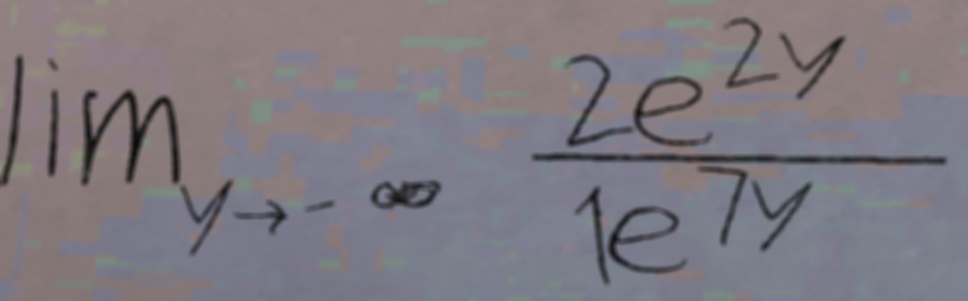 \lim_{y \to -\infty} \frac{2e^{2y}}{1e^{7y}}